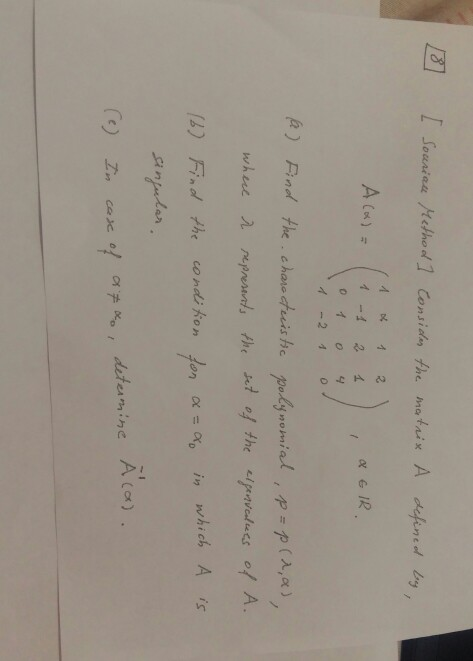 8 [Souriau Method] Consider the matrix A defined by,
A(α) = ( 1 α 1 2
1 -1 2 1
0 1 0 4
1 -2 1 0 ) , α ∈ ℝ.
(a) Find the characteristic polynomial, p = p(λ,α),
where λ represents the set of the eigenvalues of A.
(b) Find the condition for α = α₀ in which A is
singular.
(c) In case of α ≠ α₀, determine A⁻¹(α).